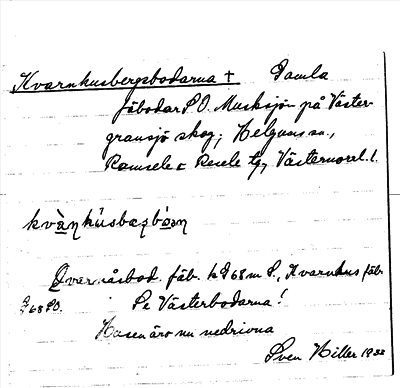 Kvarnhusbergsbodarna † Gamla
fäbodar S.O. Musksjön på Väster-
gransjö skog; Helgums sn.,
Ramsele o. Resele tg, Västernorrl. l.
kvànhúsbæʂbóɑn
fäb. kg 68 m S., Kvarnhus fäb.
68 SO. Se Västerbodarna!
Husen äro nu nedrivna
Sven Hiller 1932